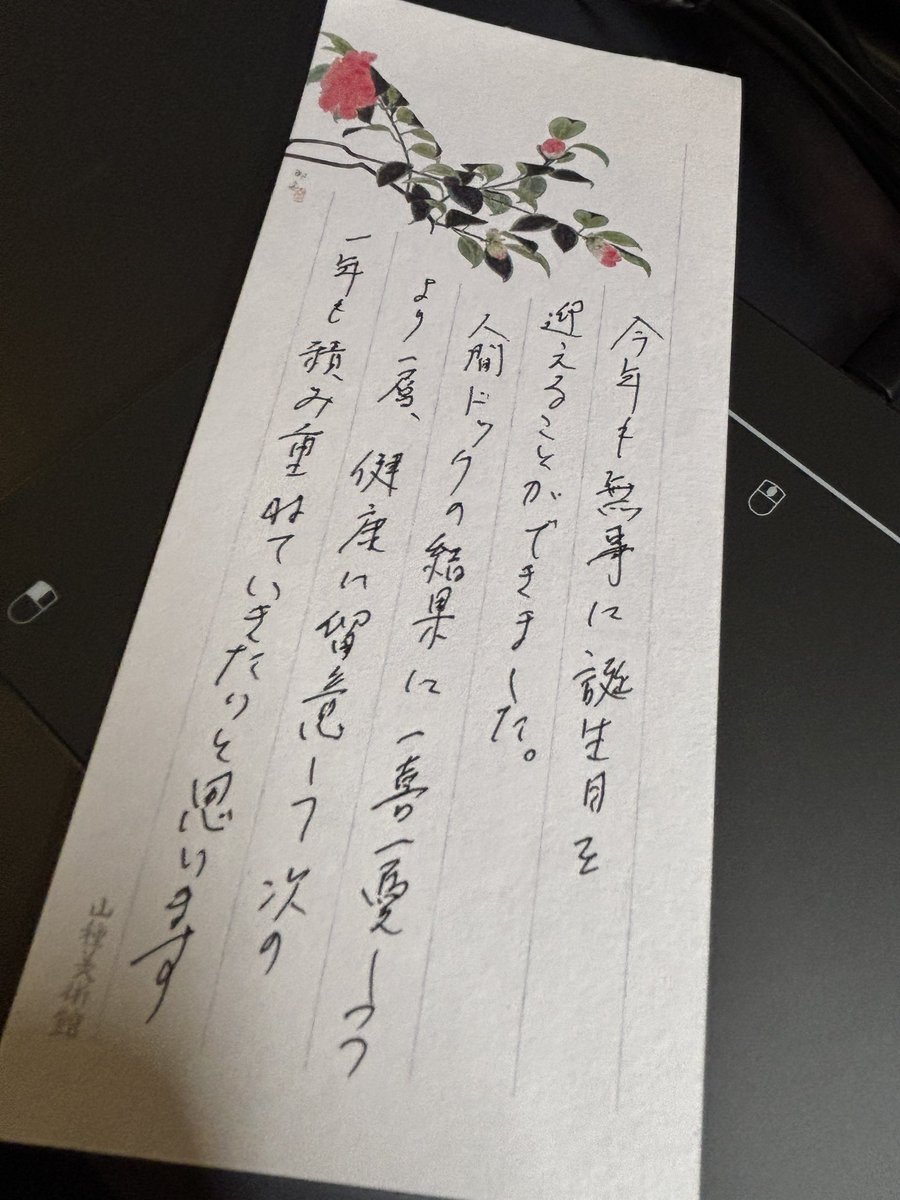 今年も無事に誕生日を
迎えることができました。
人間ドックの結果に一喜一憂しつつ
より一層、健康に留意して次の
一年も積み重ねていきたいと思います
山種美術館